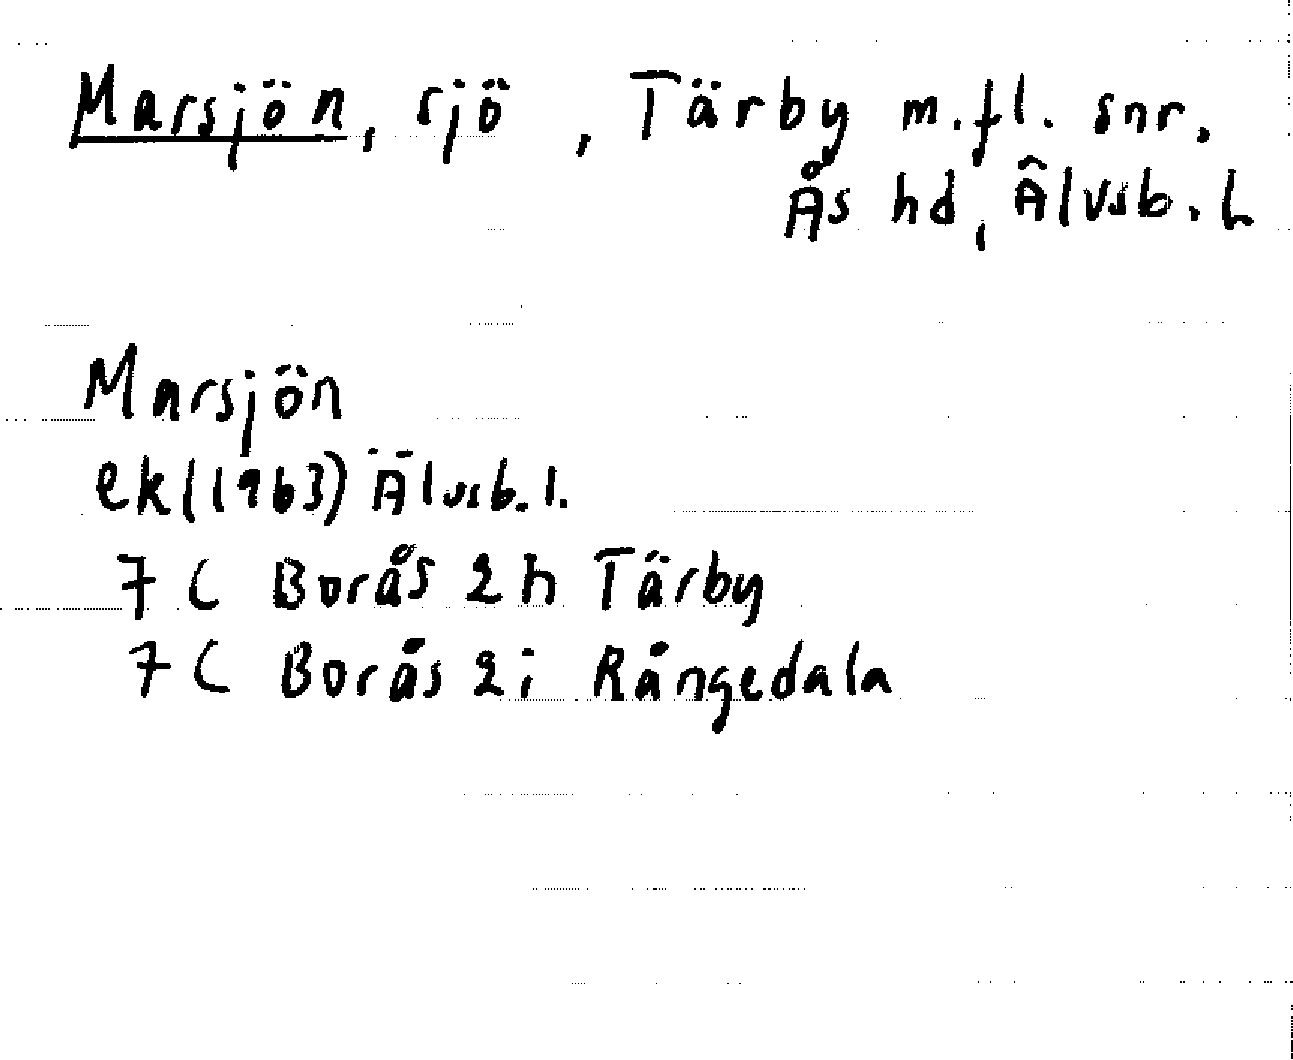 Marsjön, sjö , Tärby m.fl. snr.
Ås hd, Älvsb. L
Marsjön
ek (1963) Älvsb. l.
7 C Borås 2 h Tärby
7 C Borås 2 i Rångedala